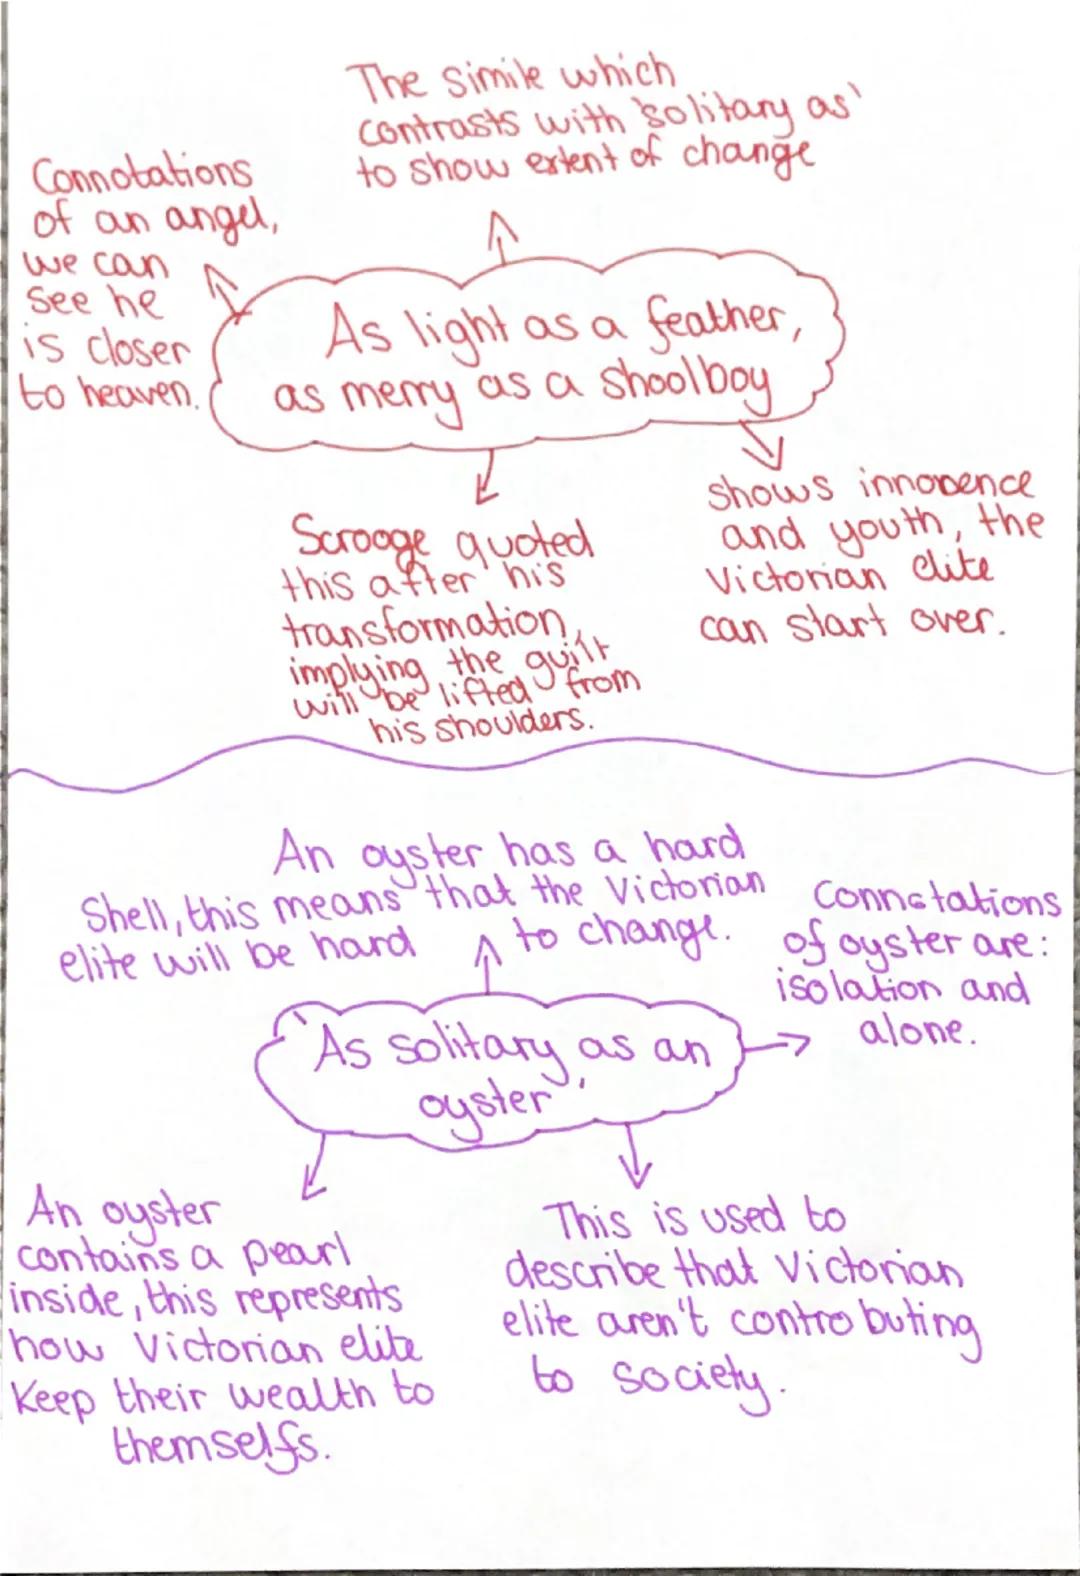 The simile which
contrasts with 'solitary as'
to show extent of change
Connotations
of an angel,
we can
see he
is closer
to heaven.
As light as a feather,
as merry as a shoolboy
Scrooge quoted
this after his
transformation,
implying the guilt
will be lifted from
his shoulders.
shows innocence
and youth, the
Victorian elite
can start over.
An oyster has a hard
Shell, this means that the Victorian
elite will be hard to change.
Connotations
of oyster are:
isolation and
alone.
'As solitary as an
oyster'
An oyster
contains a pearl
inside, this represents
how Victorian elite
Keep their wealth to
themselfs.
This is used to
describe that Victorian
elite aren't controbuting
to society.